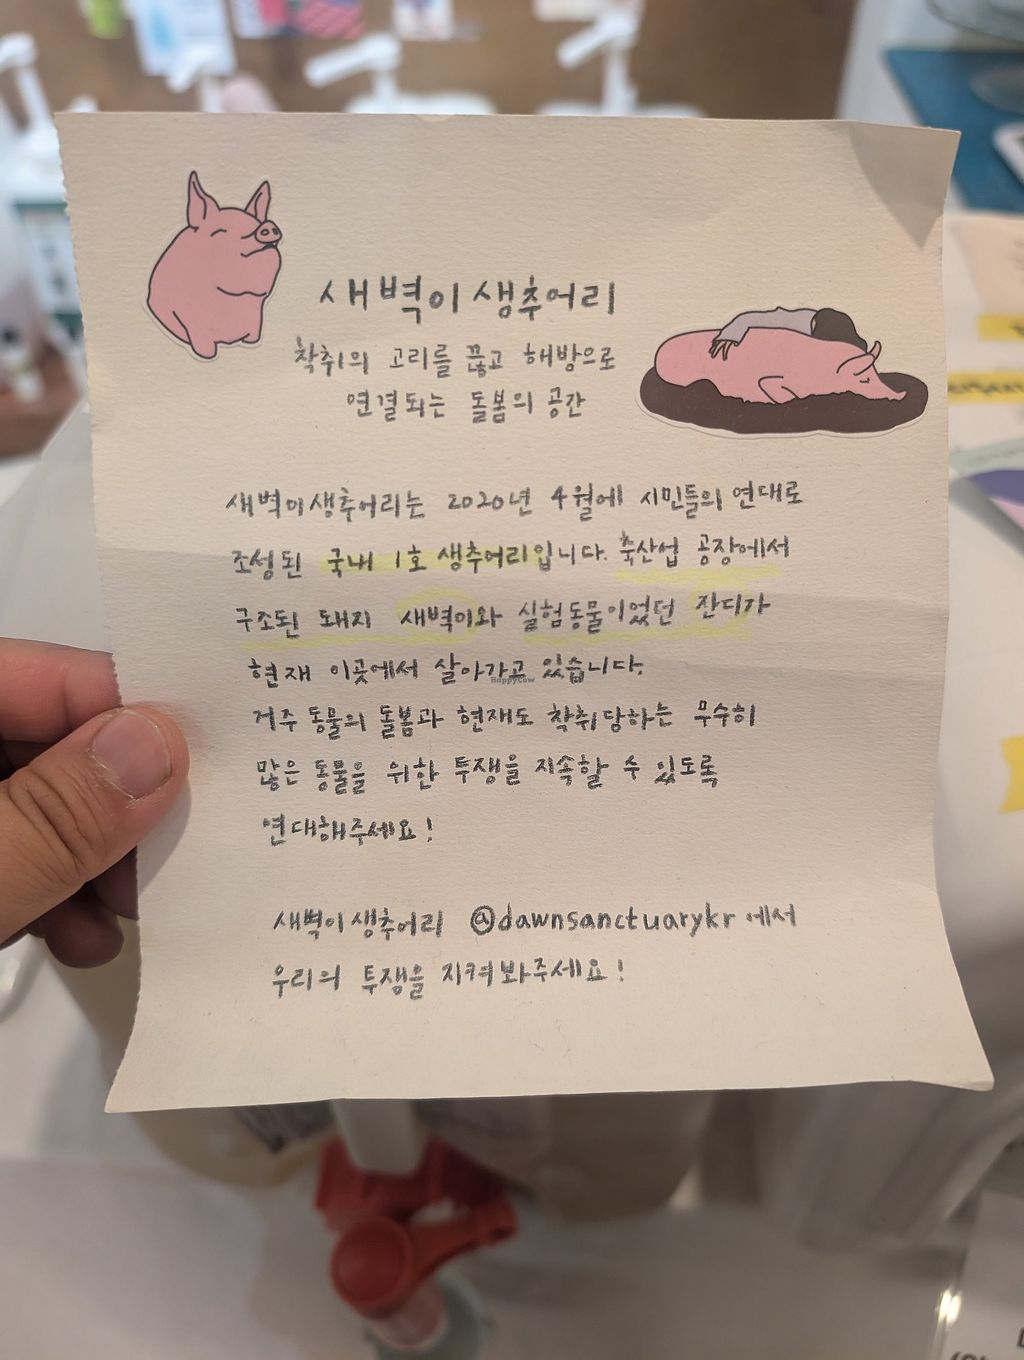 새벽이생추어리
착취의 고리를 끊고 해방으로
연결되는 돌봄의 공간
새벽이생추어리는 2020년 4월에 시민들의 연대로
조성된 국내 1호 생추어리입니다. 축산업 공장에서
구조된 돼지 새벽이와 실험동물이었던 잔디가
현재 이곳에서 살아가고 있습니다.
HappyCow
거주 동물의 돌봄과 현재도 착취당하는 무수히
많은 동물을 위한 투쟁을 지속할 수 있도록
연대해주세요!
새벽이생추어리 @dawnsanctuarykr에서
우리의 투쟁을 지켜봐주세요!